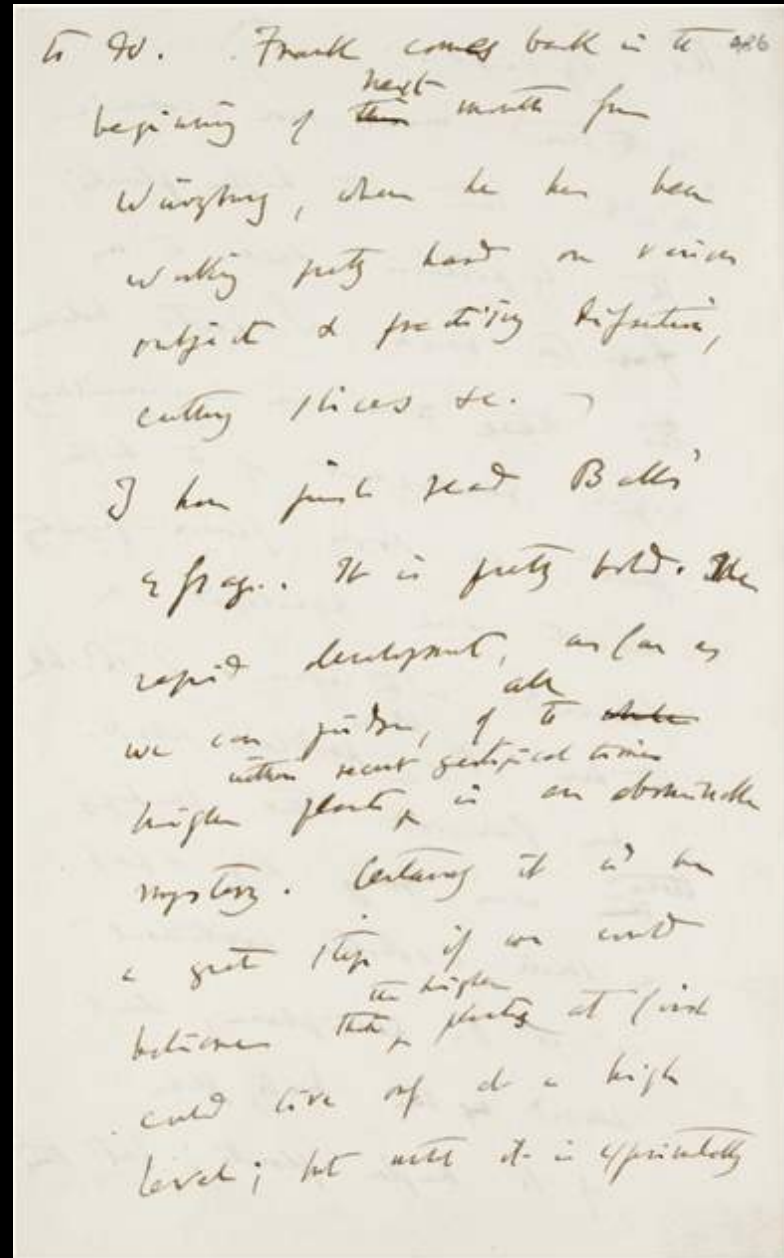 to do. Frank comes back in the
next
beginning of this month from
Würzburg, where he has been
working pretty hard on various
subjects & practising dissection,
cutting slices &c. —
I have just read Ball's
Essay. It is pretty bold. The
rapid development, as far as
all
we can judge, of the whole
within recent geological times
higher plants ‸ is an abominable
mystery. Certainly it wd be
a great step if we could
the higher
believe that ‸ plants at first
could live only at a high
level; but until it is experimentally